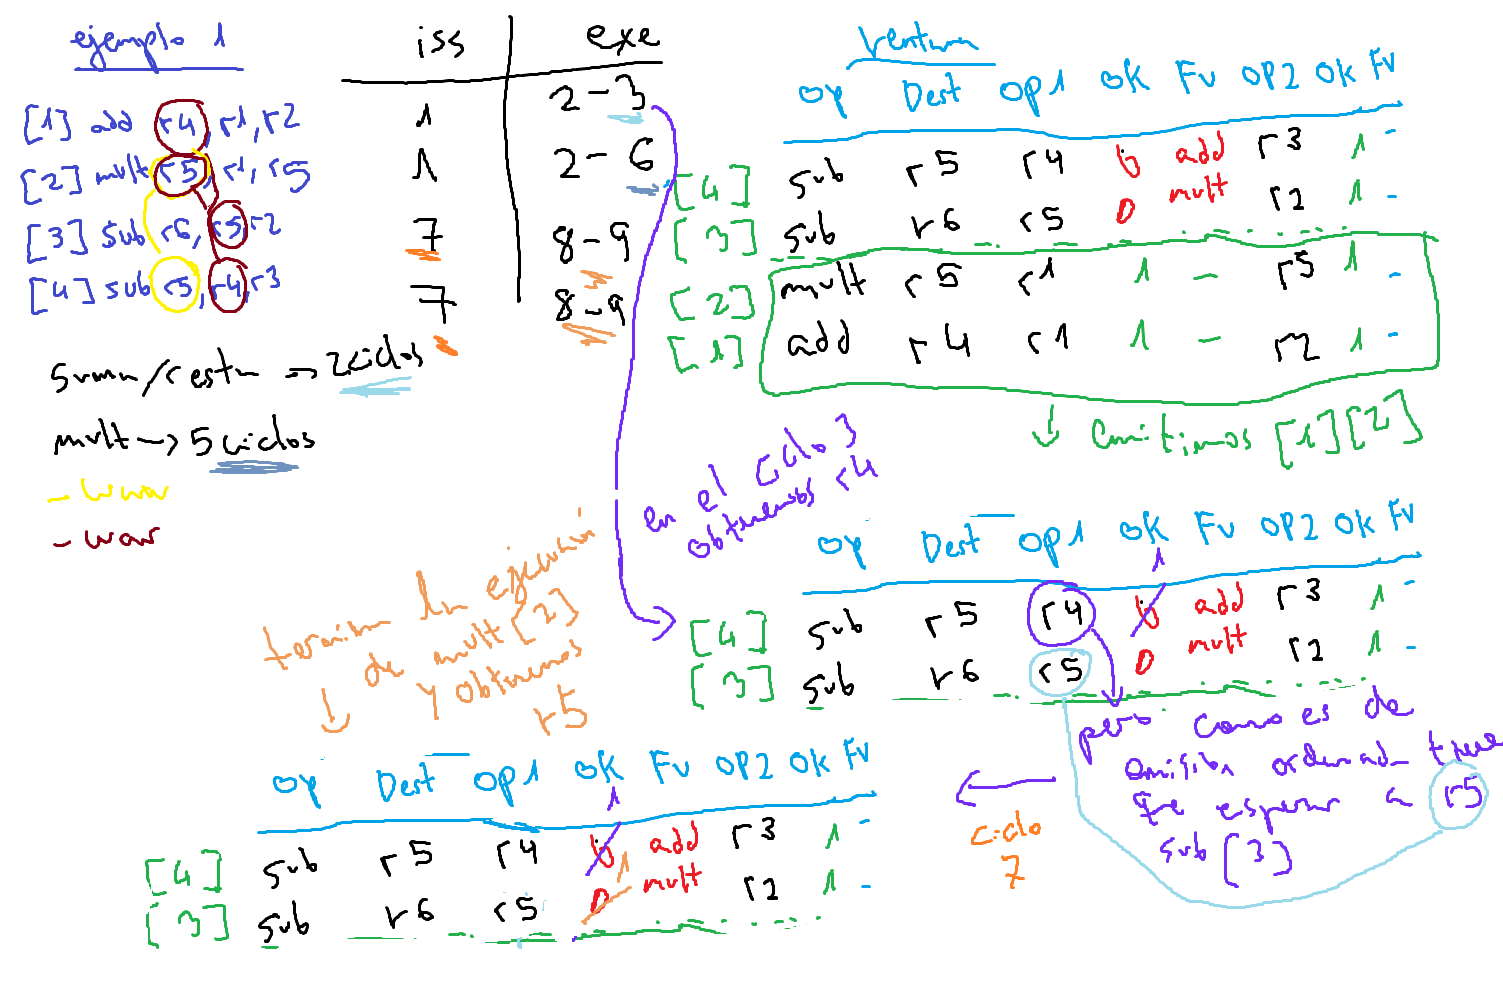 ejemplo 1
[1] add r4, r1, r2
[2] mult r5, r1, r5
[3] sub r6, r5, r2
[4] sub r5, r4, r3
suma/resta → 2 ciclos
mult → 5 ciclos
- waw
- war
iss exe
1 2-3
1 2-6
7 8-9
7 8-9
Ventana
op Dest op1 ok Fv op2 ok Fv
[4] sub r5 r4 0 add r3 1 -
[3] sub r6 r5 0 mult r2 1 -
[2] mult r5 r1 1 - r5 1 -
[1] add r4 r1 1 - r2 1 -
↓ emitimos [1][2]
en el ciclo 3
obtenemos r4
op Dest op1 ok Fv op2 ok Fv
1
[4] sub r5 r4 0 add r3 1 -
[3] sub r6 r5 0 mult r2 1 -
pero como es de
emisión ordenada tiene
que esperar a r5
sub [3]
ciclo
7
termina la ejecución
de mult [2]
y obtenemos
r5
op Dest op1 ok Fv op2 ok Fv
1
[4] sub r5 r4 0 add r3 1 -
[3] sub r6 r5 0 1 mult r2 1 -